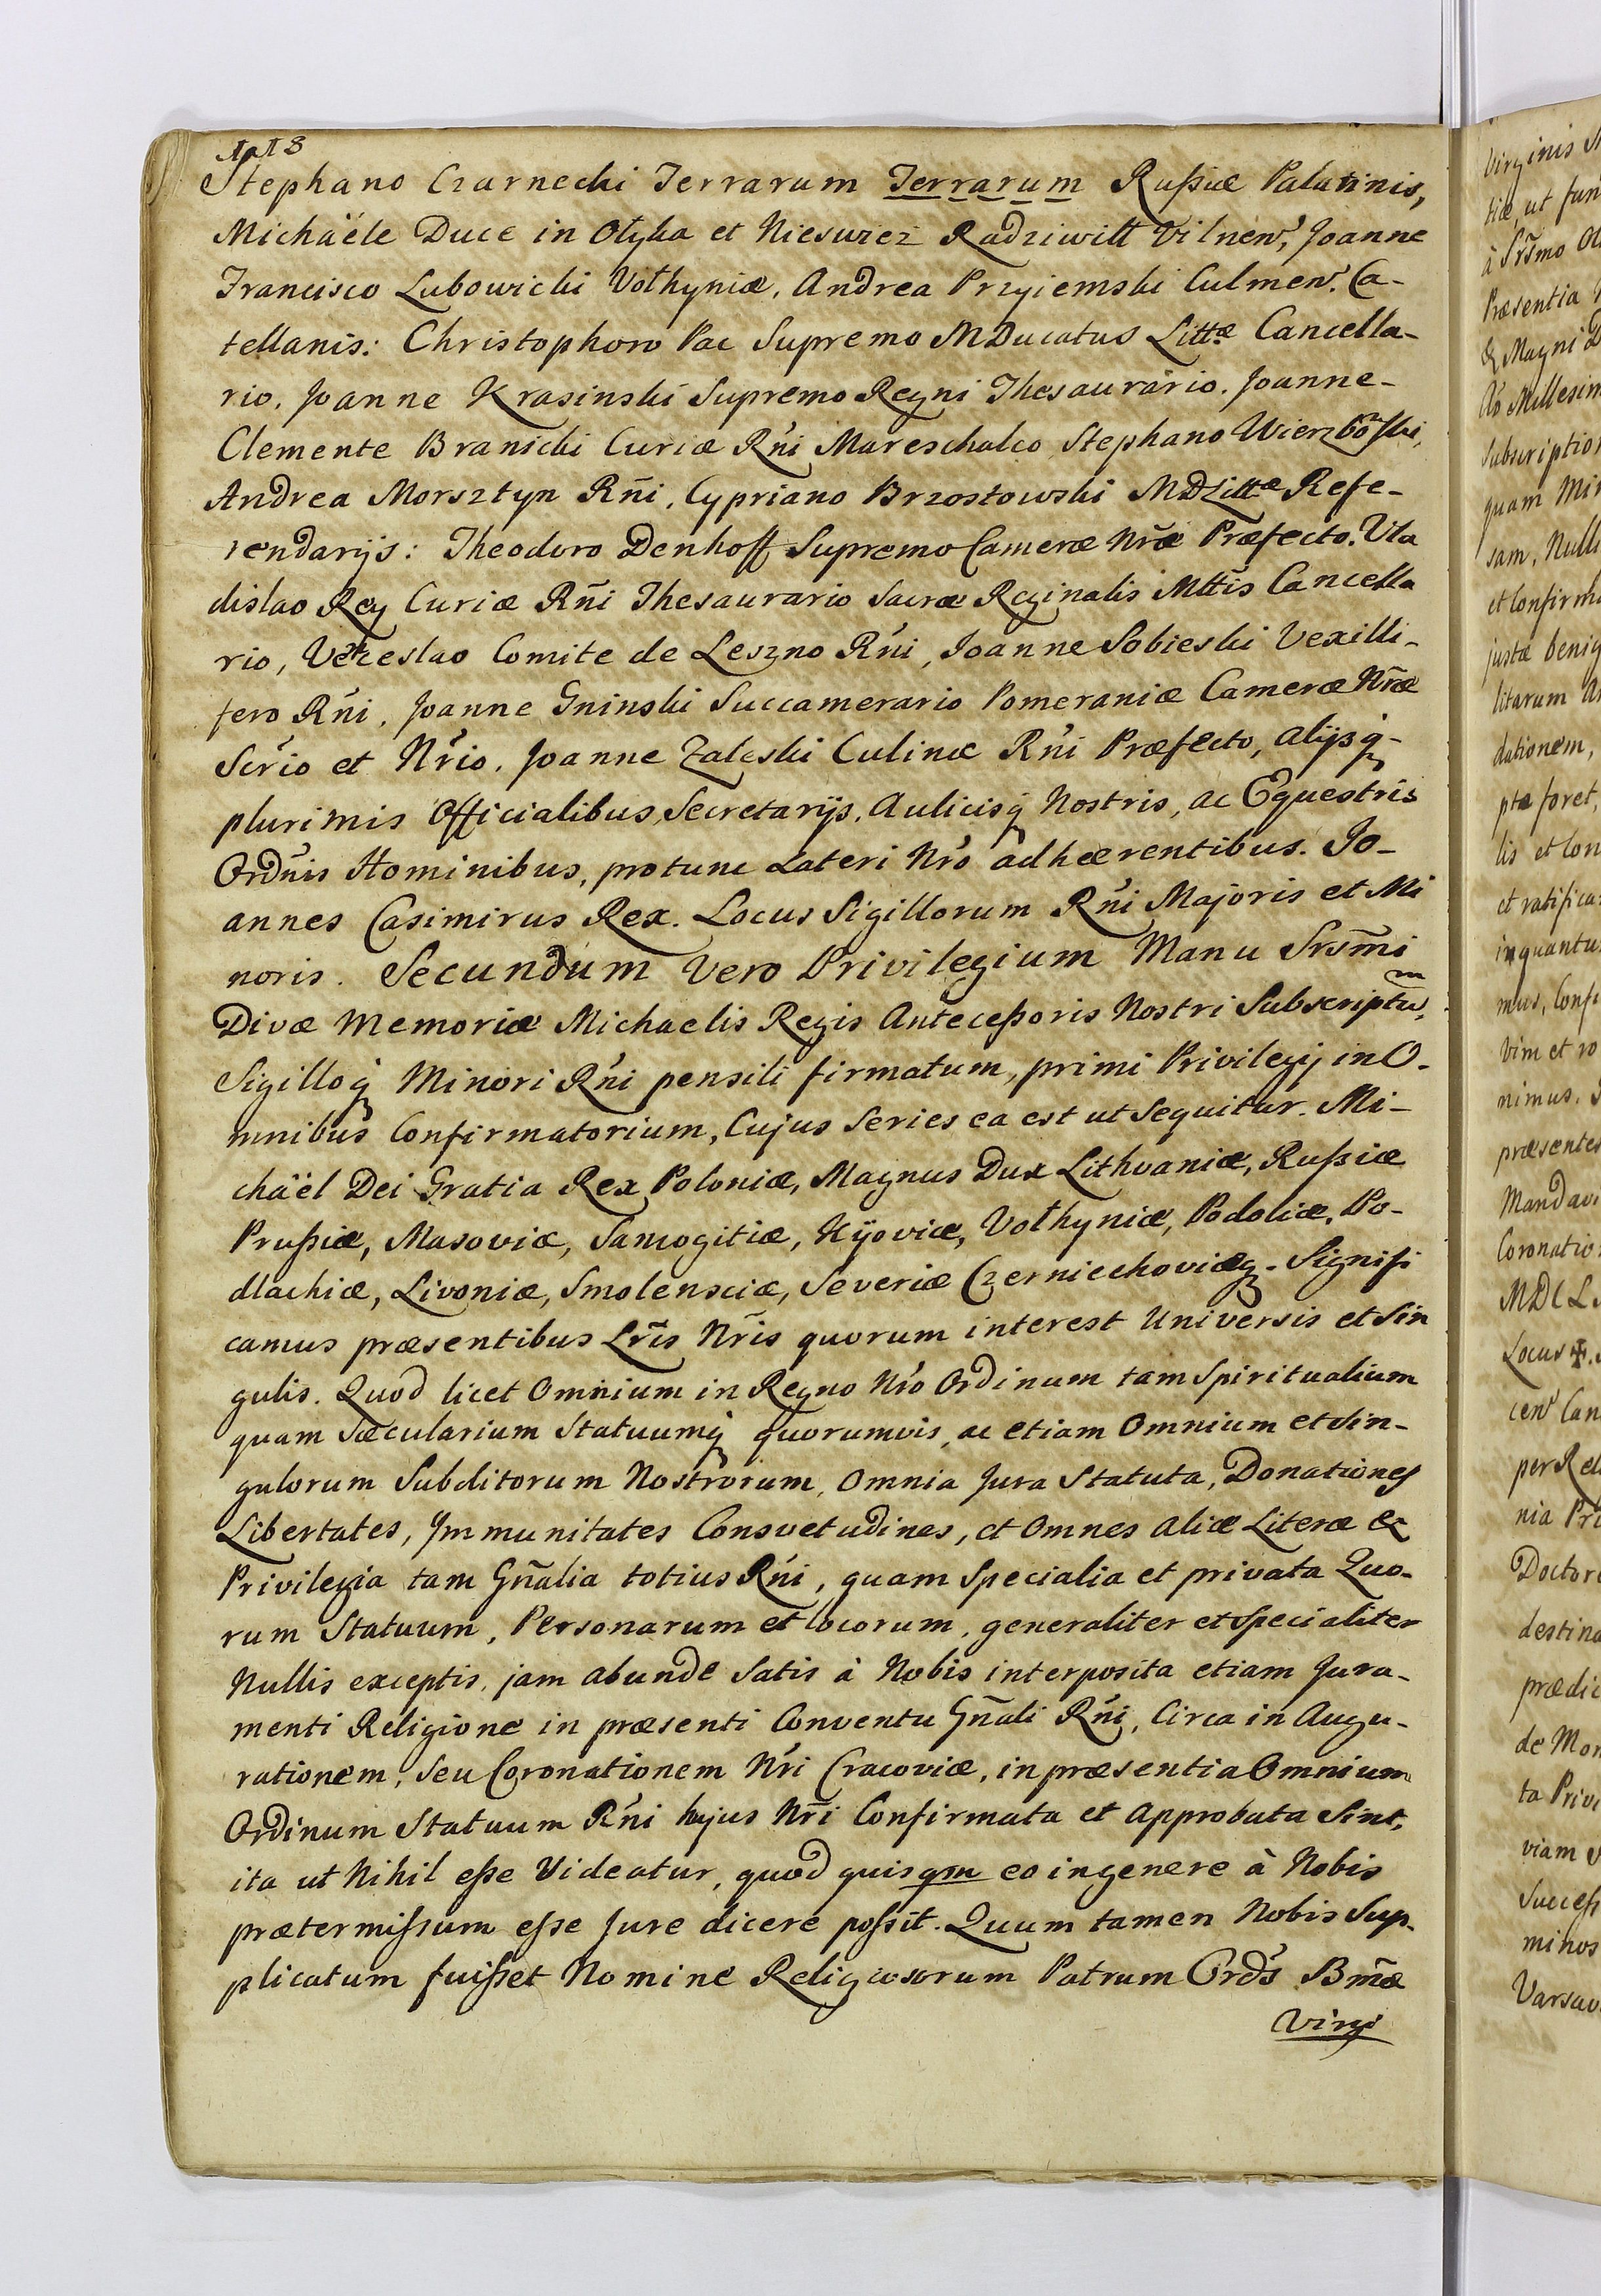 118
Stephano Czarnecki Terrarum Terrarum Rußiæ Palatinis,
Michaële Duce in Olyka et Nieswiez Radziwill Vilnen', Joanne
Francisco Lubowicki Volhyniæ, Andrea Przyiemski Culmen'. Ca-
tellanis: Christophoro Pac Supremo MDucatus Littæ Cancella-
rio, Joanne Krasinski Supremo Regni Thesaurario. Joanne-
Clemente Branicki Curiæ Rñi Mareschalco, Stephano
Andrea Morsztyn Rñi, Cypriano Brzostowski MDLittæ Refe-
rendarijs: Theodoro Denhoff Supremo Cameræ Nr̃æ Præfecto. Vla
dislao Rey Curiæ Rñi Thesaurario Sacræ Reginalis Mttis Cancella
rio, Comite de Leszno Rñi, Joanne Sobieski Vexilli-
fero Rñi, Joanne Gninski Succamerario Pomeraniæ Cameræ Nr̃æ
Scrio et Nrio. Joanne Zaleski Culinæ Rñi Præfecto, alijsq̃-
plurimis Officialibus, Secretarijs, Aulicisq̃ Nostris, ac Equestris
Ordnis Hominibus, protunc Lateri Nr̃o adhærentibus. Jo-
annes Casimirus Rex. Locus Sigillorum Rñi Majoris et Mi
noris. Secundum Vero Privilegium Manu Srsm̃i
Divæ Memoriæ Michaelis Regis Anteceßoris Nostri Subscriptum,
Sigilloq̃ Minori Rñi pensili firmatum, primi Privilegij in O-
mnibus Confirmatorium, Cujus Series ea est ut Sequitur. Mi-
chaël Dei Gratia Rex Poloniæ, Magnus Dux Lithvaniæ, Rußiæ
Prußiæ, Masoviæ, Samogitiæ, Kÿoviæ, Volhyniæ, Podoliæ, Po-
dlachiæ, Livoniæ, Smolensciæ, Severiæ Czerniechoviæq̃. Signifi
camus præsentibus Lr̃is Nr̃is quorum interest Universis et Sin
gulis. Quod licet Omnium in Regno Nr̃o Ordinum tam Spiritualium
quam Sæcularium Statuumq̃ quorumvis, ac etiam Omnium et Sin-
gulorum Subditorum Nostrorum, Omnia Jura Statuta, Donationes
Libertates, Immunitates Consvetudines, et Omnes aliæ Literæ &
Privilegia tam Gñalia totius Rñi, quam Specialia et privata Quo-
rum Statuum, Personarum et locorum, generaliter et Specialiter
Nullis exceptis, jam abunde Satis à Nobis interposita etiam Jura-
menti Religione in præsenti Conventu Gñali Rñi, Circa in Augu-
rationem, Seu Coronationem Nr̃i Cracoviæ, in præsentia Omnium
Ordinum Statuum Rñi hujus Nr̃i Confirmata et Approbata Sint,
ita ut Nihil eße Videatur, quod quisqm eo ingenere à Nobis
prætermißum eße Jure dicere poßit. Quum tamen Nobis Sup-
plicatum fuißet Nomine Religiosorum Patrum Ords Bm̃æ
Virgi